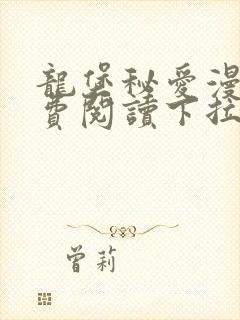 龍堡秘愛漫
費閱讀下拉
曾莉